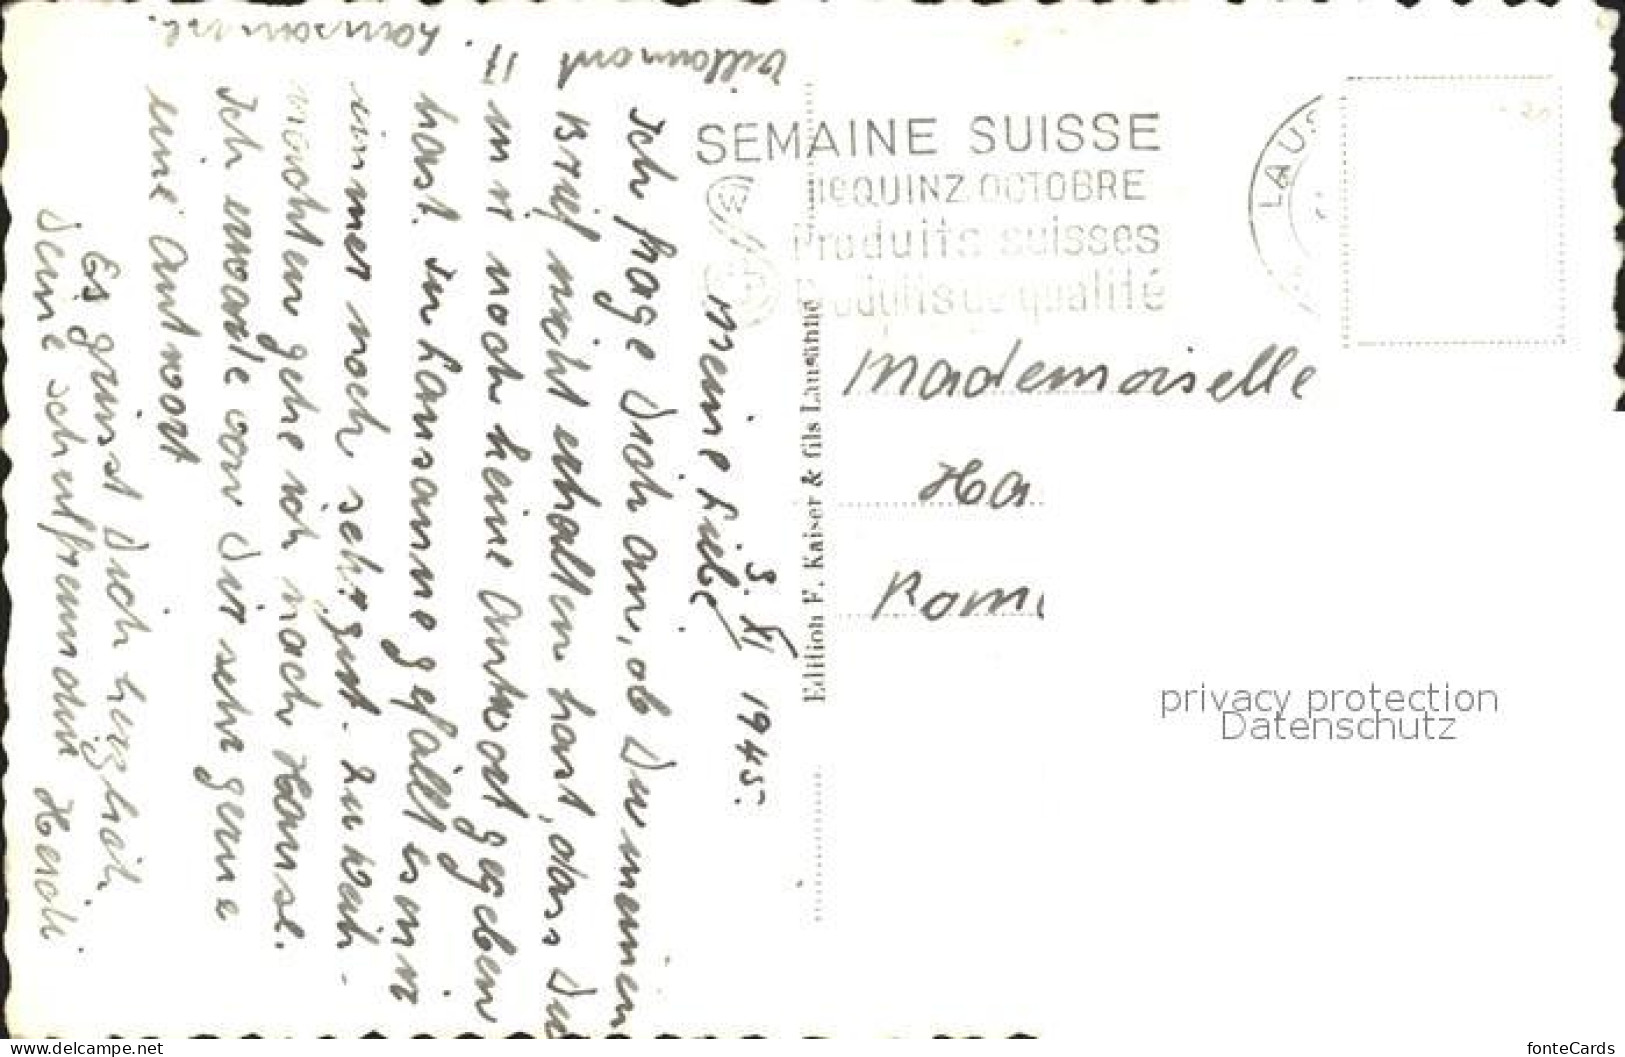 SEMAINE SUISSE
QUINZ. OCTOBRE
Produits suisses
Produits de qualité
LAUS
Mademoiselle
Ha
Rom
Edition F. Kaiser & fils Lausanne
3. XI 1945.
Meine Liebe
Ich frage Dich an, ob Du meinen
Brief nicht erhalten hast, dass Du
mir noch keine Antwort gegeben
hast. In Lausanne gefällt es mir
immer noch sehr gut. Zu Weih-
nachten gehe ich nach Hause.
Ich erwarte von Dir sehr gerne
eine Antwort
Es grüsst Dich herzlich
Deine Schulfreundin Heidi.
Villamont
11
Lausanne.
privacy protection
Datenschutz
www.delcampe.net
fonteCards